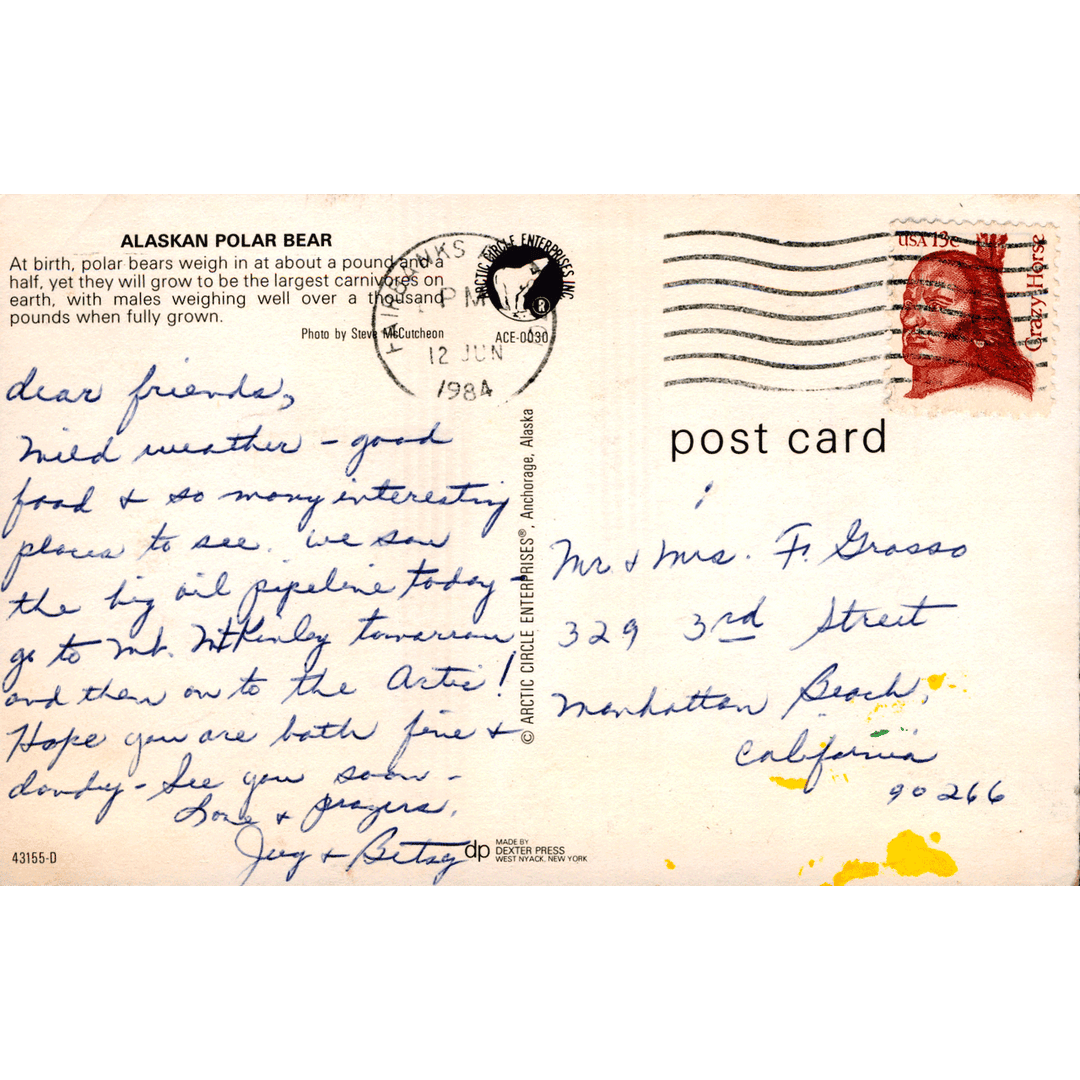 ALASKAN POLAR BEAR
At birth, polar bears weigh in at about a pound and a
half, yet they will grow to be the largest carnivores on
earth, with males weighing well over a thousand
pounds when fully grown.
Photo by Steve McCutcheon
ACE-0030
ARCTIC CIRCLE ENTERPRISES INC.
®
FAIRBANKS
PM
12 JUN
1984
USA 13c
Crazy Horse
post card
dear friends,
Mild weather - good
food & so many interesting
places to see. We saw
the big oil pipeline today -
go to Mt. McKinley tomorrow
and then on to the Artic!
Hope you are both fine &
dandy - See you soon -
Love & prayers,
& Betsy
© ARCTIC CIRCLE ENTERPRISES®, Anchorage, Alaska
Mr. & Mrs. F. Grosso
329 3rd Street
Manhattan Beach,
California
90266
43155-D
dp
MADE BY
DEXTER PRESS
WEST NYACK, NEW YORK